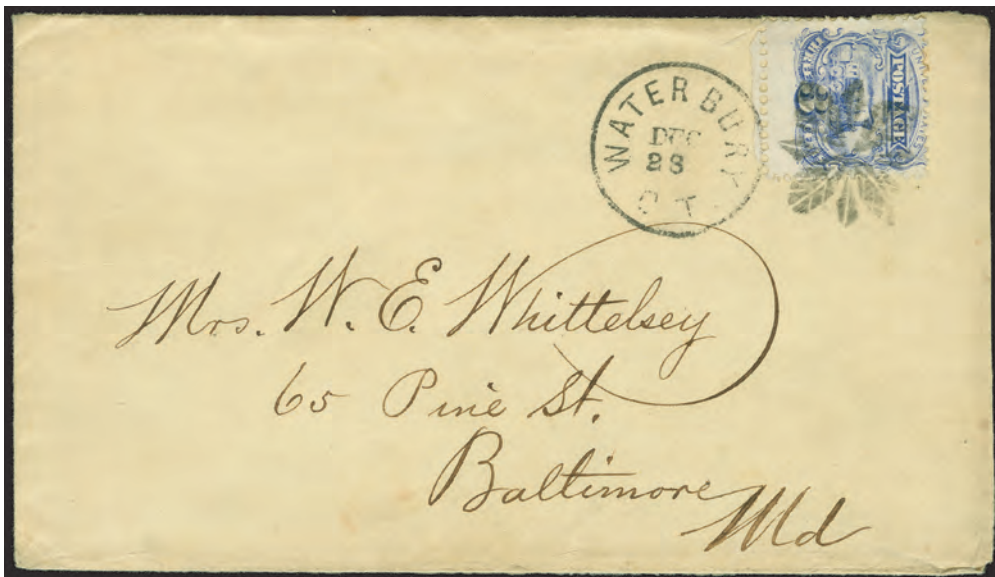 WATERBURY
DEC
23
CT
POSTAGE
3
Mrs. W. E. Whittelsey
65 Pine St.
Baltimore
Md